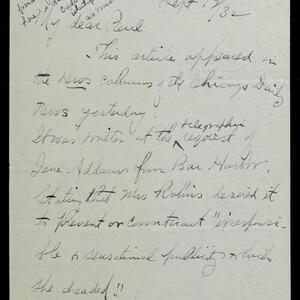 Sept 19/32
My dear Paul
This article appeared in
the News columns of the Chicago Daily
News yesterday.
It was written at the telegraphic request of
Jane Addams from Bar Harbor,
stating that Mrs Robins desired it
to prevent or counteract "irresponsi-
ble & sensational publicity which
she dreaded".